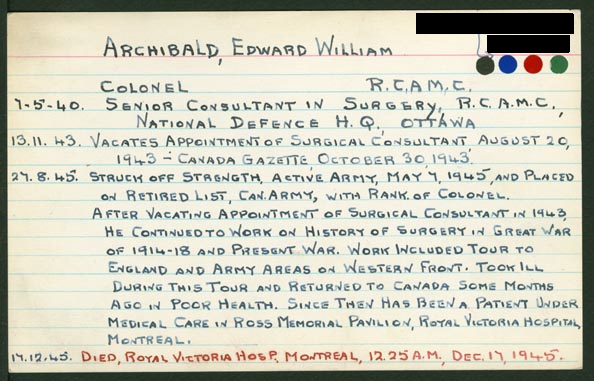 ARCHIBALD, EDWARD WILLIAM
COLONEL R.C.A.M.C.
7-5-40. SENIOR CONSULTANT IN SURGERY, R.C.A.M.C.,
NATIONAL DEFENCE H.Q., OTTAWA
13.11.43. VACATES APPOINTMENT OF SURGICAL CONSULTANT, AUGUST 20,
1943 - CANADA GAZETTE OCTOBER 30, 1943.
27.8.45. STRUCK OFF STRENGTH, ACTIVE ARMY, MAY 7, 1945, AND PLACED
ON RETIRED LIST, CAN. ARMY, WITH RANK OF COLONEL.
AFTER VACATING APPOINTMENT OF SURGICAL CONSULTANT IN 1943,
HE CONTINUED TO WORK ON HISTORY OF SURGERY IN GREAT WAR
OF 1914-18 AND PRESENT WAR. WORK INCLUDED TOUR TO
ENGLAND AND ARMY AREAS ON WESTERN FRONT. TOOK ILL
DURING THIS TOUR AND RETURNED TO CANADA SOME MONTHS
AGO IN POOR HEALTH. SINCE THEN HAS BEEN A PATIENT UNDER
MEDICAL CARE IN ROSS MEMORIAL PAVILION, ROYAL VICTORIA HOSPITAL,
MONTREAL.
17.12.45. DIED, ROYAL VICTORIA HOSP., MONTREAL, 12.25 A.M., DEC. 17, 1945.